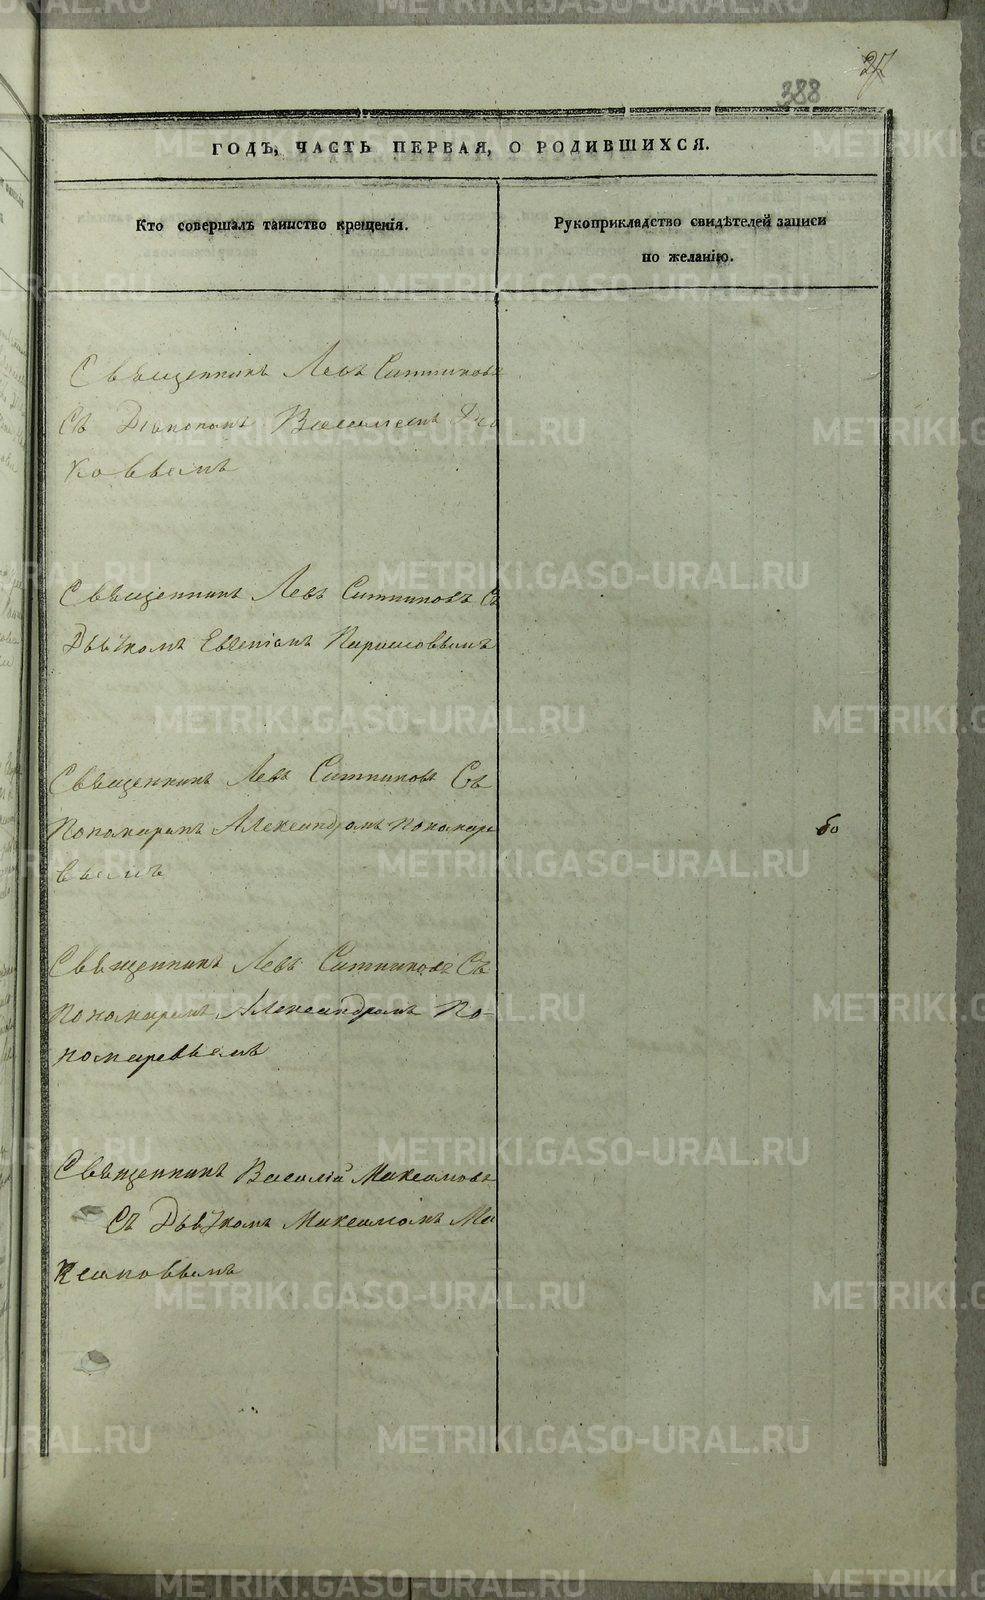 27
388
ГОДЪ, ЧАСТЬ ПЕРВАЯ, О РОДИВШИХСЯ.
Кто совершалъ таинство крещенія.
Рукоприкладство свидѣтелей записи
по желанію.
Священникъ Левъ Ситниковъ
Съ Діякономъ Василіемъ
ковымъ
Священникъ Левъ Ситниковъ Съ
Дьячкомъ Евгеніемъ
Священникъ Левъ Ситниковъ Съ
Пономаремъ Александромъ Пономаре
вымъ
60
Священникъ Левъ Ситниковъ Съ
Пономаремъ Александромъ По-
номаревымъ
Священникъ Василій Максимовъ
Съ Дьячкомъ Максимомъ Ма
ксимовымъ
METRIKI.GASO-URAL.RU